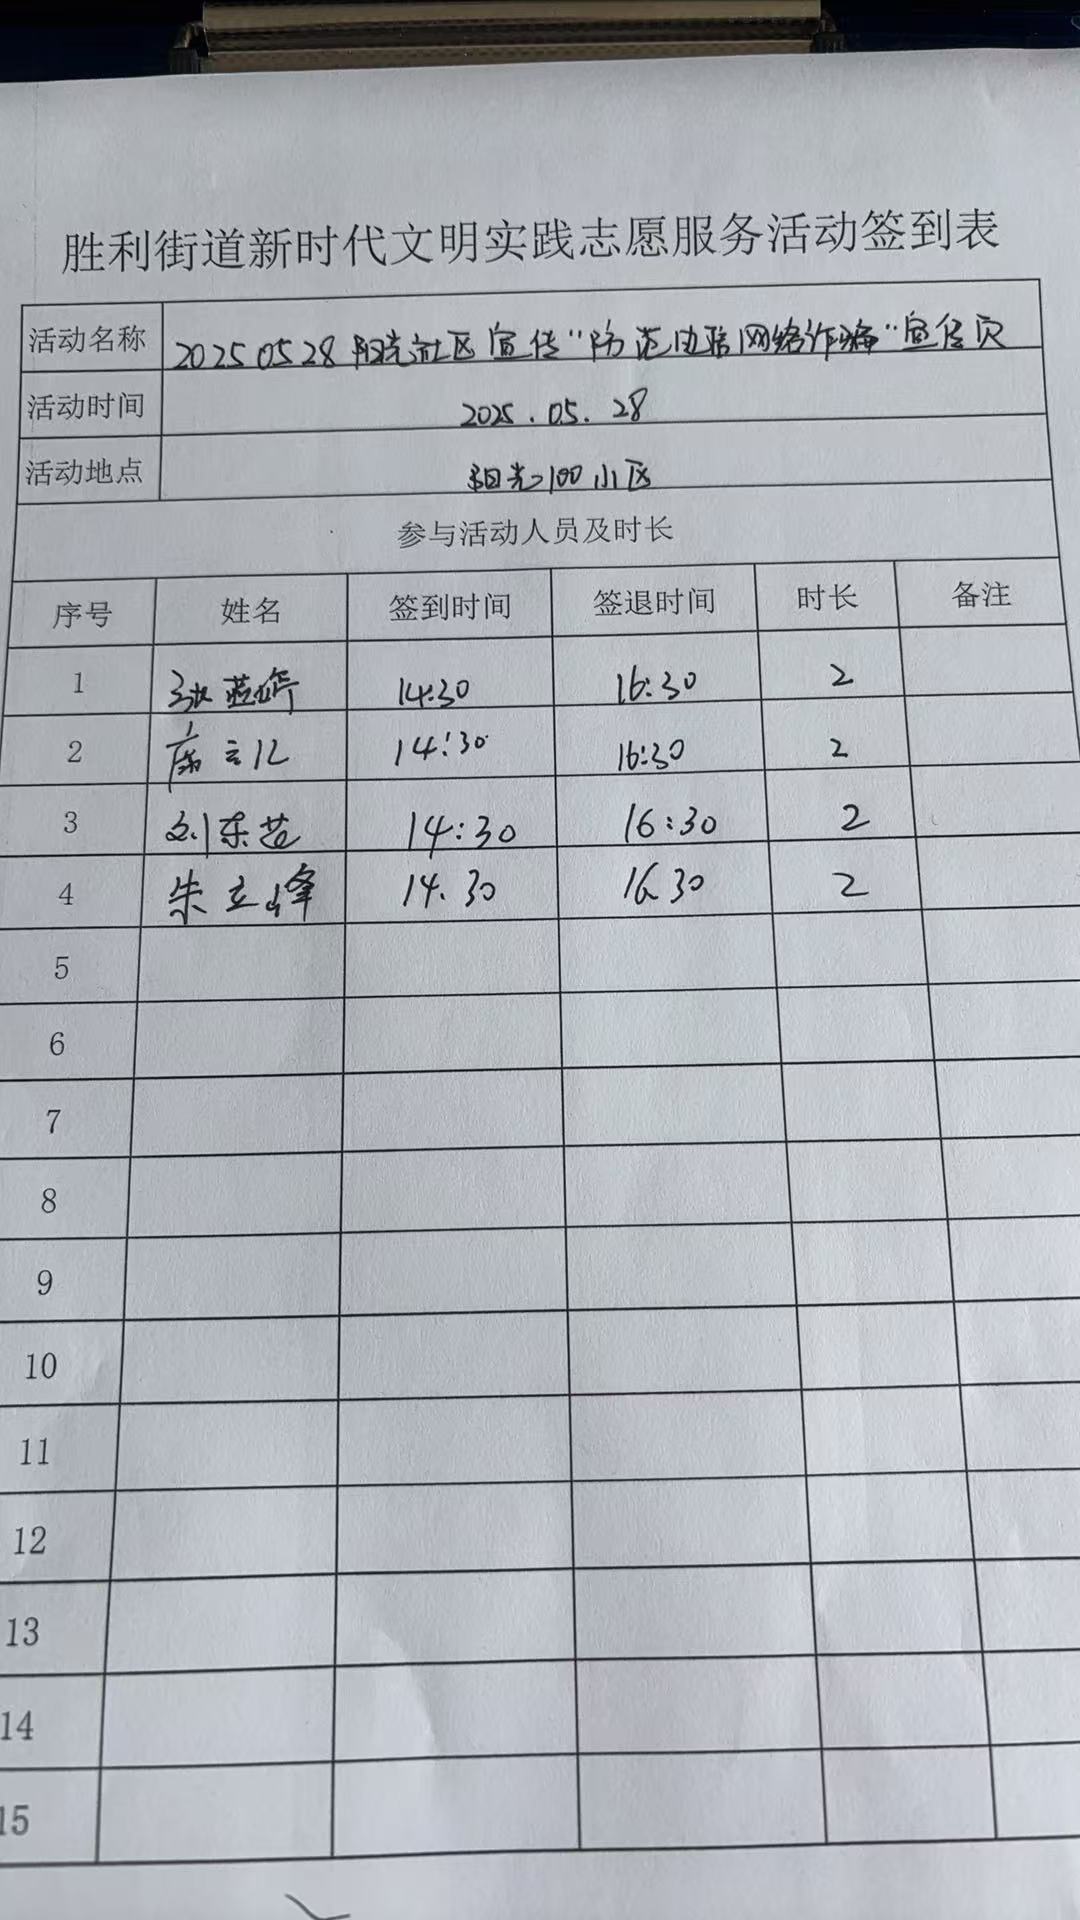 胜利街道新时代文明实践志愿服务活动签到表
活动名称 20250528 阳光社区宣传"防范电信网络诈骗"宣传页
活动时间 2025.05.28
活动地点 阳光100小区
参与活动人员及时长
序号 姓名 签到时间 签退时间 时长 备注
1 张 14:30 16:30 2
2 14:30 16:30 2
3 刘东 14:30 16:30 2
4 朱立峰 14.30 16.30 2
5
6
7
8
9
10
11
12
13
14
15